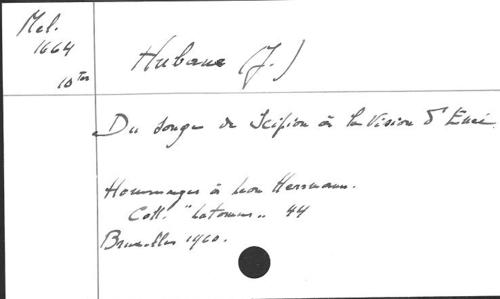 Mel.
1664
10 Ter
Hubaux (J.)
Du songe de Scipion à la vision d'Enée.
Hommages à Léon Herrmann.
Coll. "Latomus" 44
Bruxelles 1960.